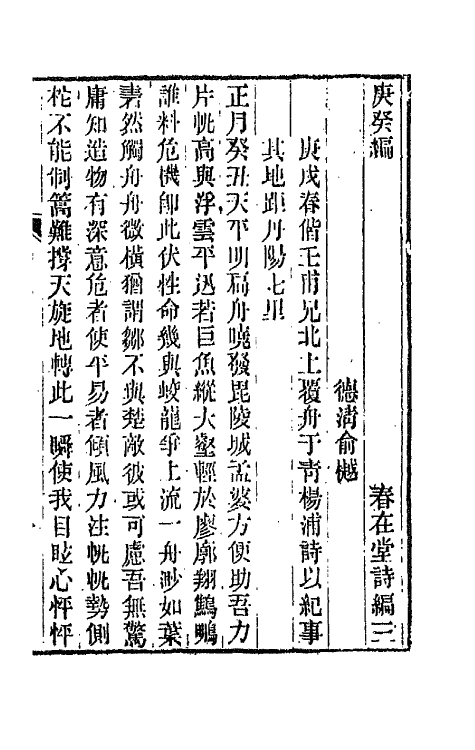 庚癸編　春在堂詩編三
德淸俞樾
庚戌春偕壬甫兄北上覆舟于靑楊浦詩以紀事
其地距丹陽七里
正月癸丑天平明扁舟曉發毘陵城孟婆方便助吾力
片㠶高與浮雲平迅若巨魚縱大壑輕於廖廓翔鷦鵬
誰料危機卽此伏性命幾與蛟龍爭上流一舟渺如葉
砉然觸舟舟微橫猶謂鄒不與楚敵彼或可慮吾無驚
庸知造物有深意危者使平易者傾風力注㠶㠶勢側
柁不能制篙難撐天旋地轉此一瞬使我目眩心怦怦